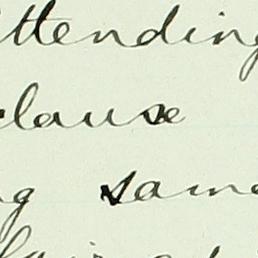 attending
clause
ng same